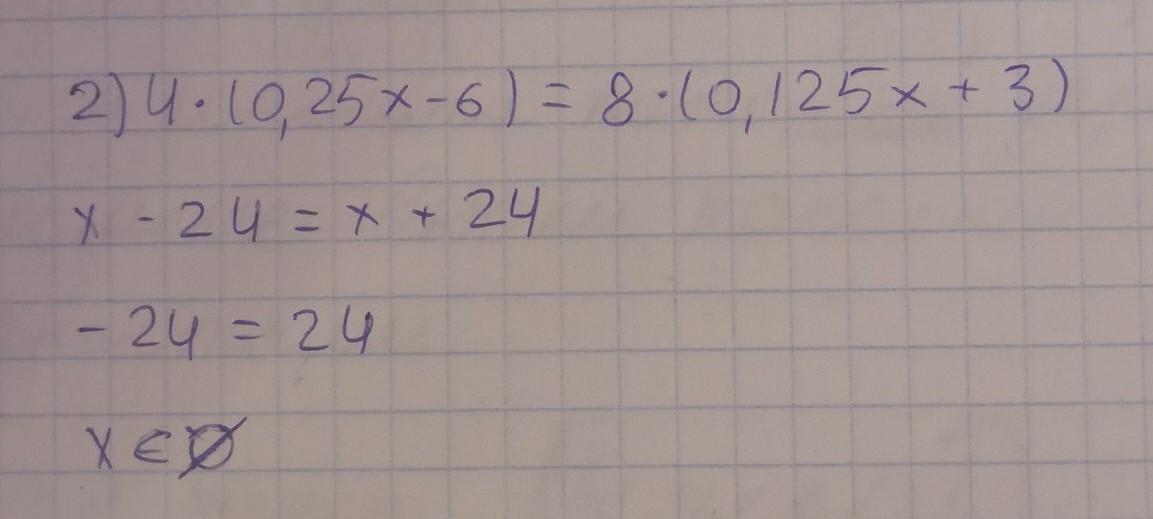 2) 4 · (0,25x - 6) = 8 · (0,125x + 3)
x - 24 = x + 24
- 24 = 24
x ∈ ∅